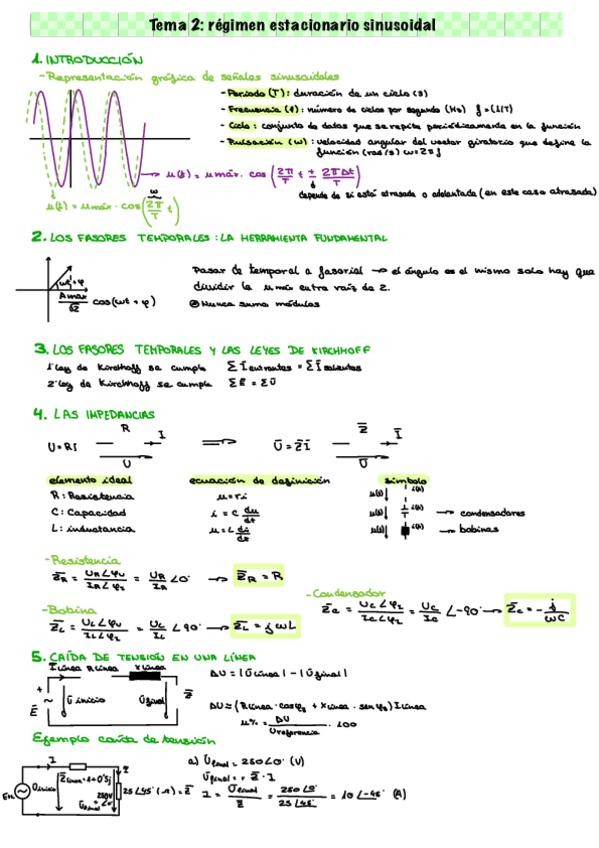 Tema 2: régimen estacionario sinusoidal
1. INTRODUCCIÓN
- Representación gráfica de señales sinusoidales
- Periodo (T): duración de un ciclo (s)
- Frecuencia (f): número de ciclos por segundo (Hz) f=(1/T)
- Ciclo: conjunto de datos que se repite periódicamente en la función
- Pulsación (ω): velocidad angular del vector giratorio que define la
función (rad/s) ω=2πf
u(t) = umáx. cos (2π/T t ± 2πΔt/T)
depende de si está atrasada o adelantada (en este caso atrasada)
ω
u(t) = umáx · cos (2π/T t)
2. LOS FASORES TEMPORALES: LA HERRAMIENTA FUNDAMENTAL
ωt+φ
Amáx/√2 cos(ωt+φ)
Pasar de temporal a fasorial → el ángulo es el mismo solo hay que
dividir la umáx entre raíz de 2.
Nunca sumo módulos
3. LOS FASORES TEMPORALES Y LAS LEYES DE KIRCHHOFF
1ª ley de Kirchhoff se cumple Σ Ī entrantes = Σ Ī salientes
2ª ley de Kirchhoff se cumple Σ Ē = Σ Ū
4. LAS IMPEDANCIAS
U=RI R I U ⇒ Ū=Z̄Ī Z̄ Ī Ū
elemento ideal ecuación de definición símbolo
R: Resistencia u=ri u(t) i(t)
C: Capacidad i = C du/dt u(t) i(t) → condensadores
L: inductancia u = L di/dt u(t) i(t) → bobinas
- Resistencia
Z̄R = UR∠φU / IR∠φI = UR/IR ∠0° → Z̄R = R
- Condensador
Z̄C = UC∠φI / IC∠φI = UC/IC ∠-90° → Z̄C = - j/ωC
- Bobina
Z̄L = UL∠φU / IL∠φI = UL/IL ∠90° → Z̄L = jωL
5. CAÍDA DE TENSIÓN EN UNA LÍNEA
I línea R línea X línea
+ Ē Ū inicio Ū final Z̄
ΔU = |Ū línea| - |Ū final|
ΔU ≃ (R línea · cosφ + X línea · senφ) I línea
u% = ΔU / U referencia · 100
Ejemplo caída de tensión
I
U inicio
25∠45° (Ω) = Z̄
a) Ū final = 250∠0° (V)
Ū final = Z̄ · I
I = Ū final / Z̄ = 250∠0° / 25∠45° = 10∠-45° (A)